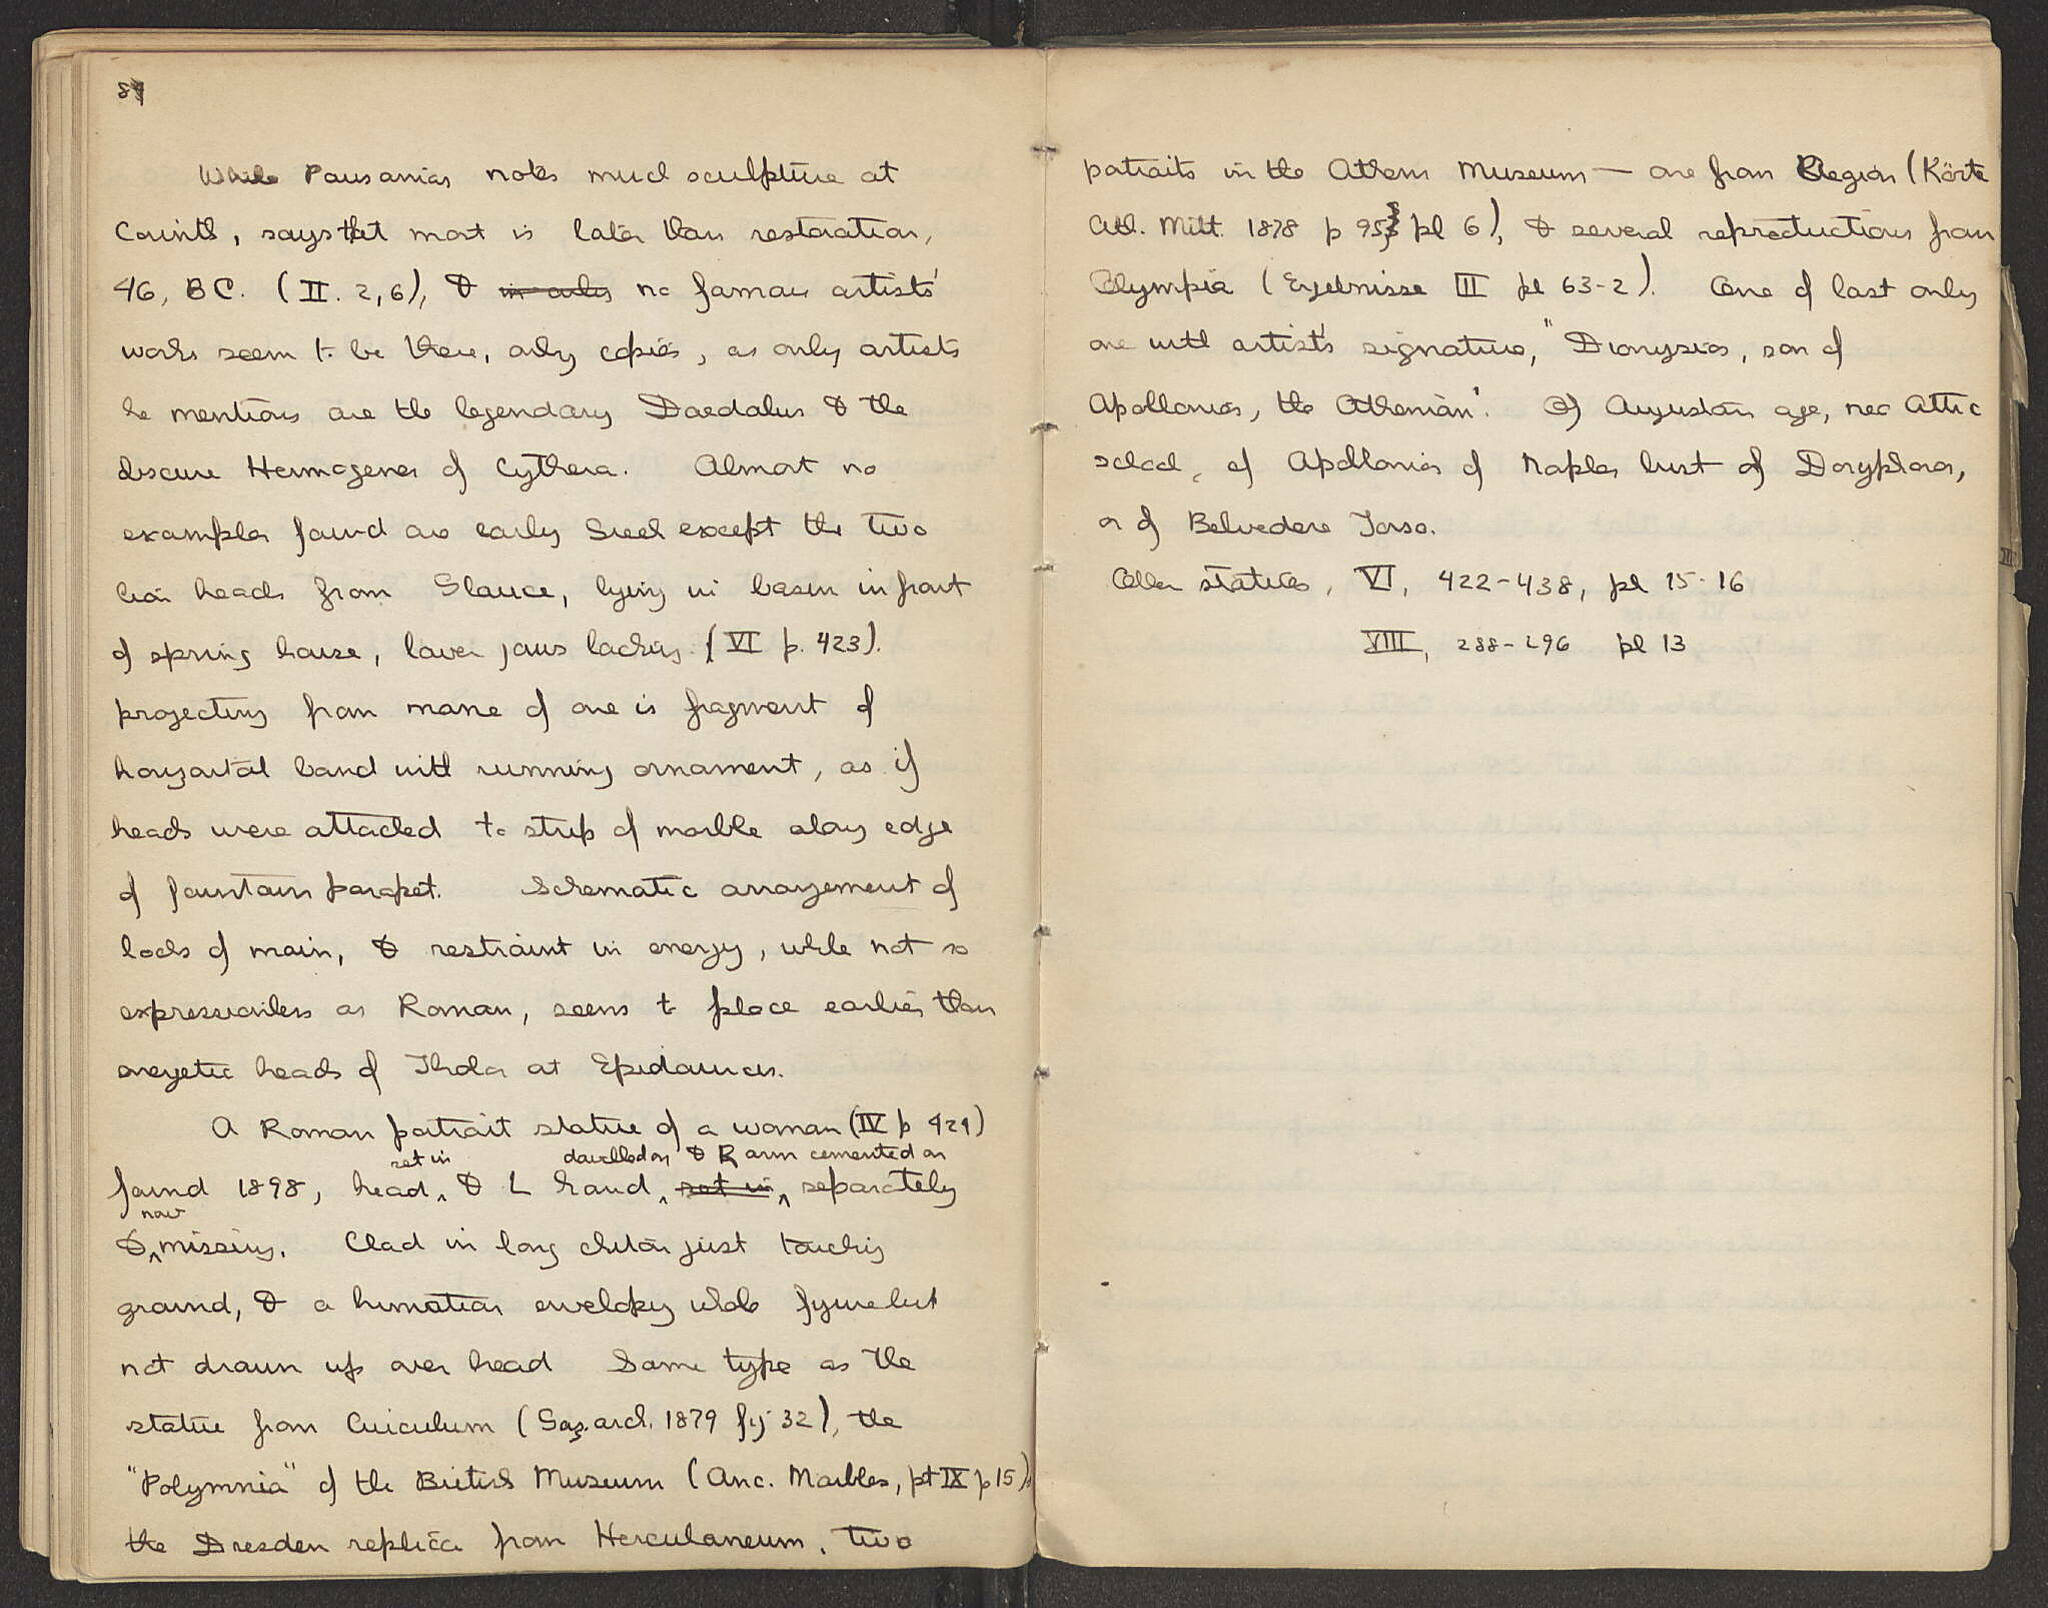 89
While Pausanias notes much sculpture at
Corinth, says that most is later than restoration,
46, BC. (II. 2, 6), & in only no famous artists'
works seem to be there, only copies, as only artists
he mentions are the legendary Daedalus & the
obscure Hermogenes of Cythera. Almost no
examples found are early Greek except the two
lion heads from Glauce, lying in basin in front
of spring house, lower jaws lacking. (VI p. 423).
projecting from mane of one is fragment of
horizontal band with running ornament, as if
heads were attached to strip of marble along edge
of fountain parapet. Schematic arrangement of
locks of main, & restraint in energy, while not so
expressionless as Roman, seems to place earlier than
energetic heads of Tholos at Epidaurus.
A Roman portrait statue of a woman (IV p 424)
set in dowelled on & R arm cemented on
found 1898, head, & L hand, set in, separately
now
& missing. Clad in long chiton just touching
ground, & a himation enveloping whole figure but
not drawn up over head Same type as the
statue from Cuiculum (Gaz. arch. 1879 fig 32), the
"Polymnia" of the British Museum (Anc. Marbles, pt IX p 15),
the Dresden replica from Herculaneum, two
portraits in the Athens Museum — one from Aegion (Körte
Ath. Mitt. 1878 p 95, pl 6), & several reproductions from
Olympia (Ergebnisse III pl 63-2). One of last only
one with artist's signature, "Dionysios, son of
Apollonios, the Athenian". Of Augustan age, neo Attic
school, cf Apollonios of Naples bust of Doryphoros,
or of Belvedere Torso.
Other statues, VI, 422-438, pl 15-16
VIII, 288-296 pl 13